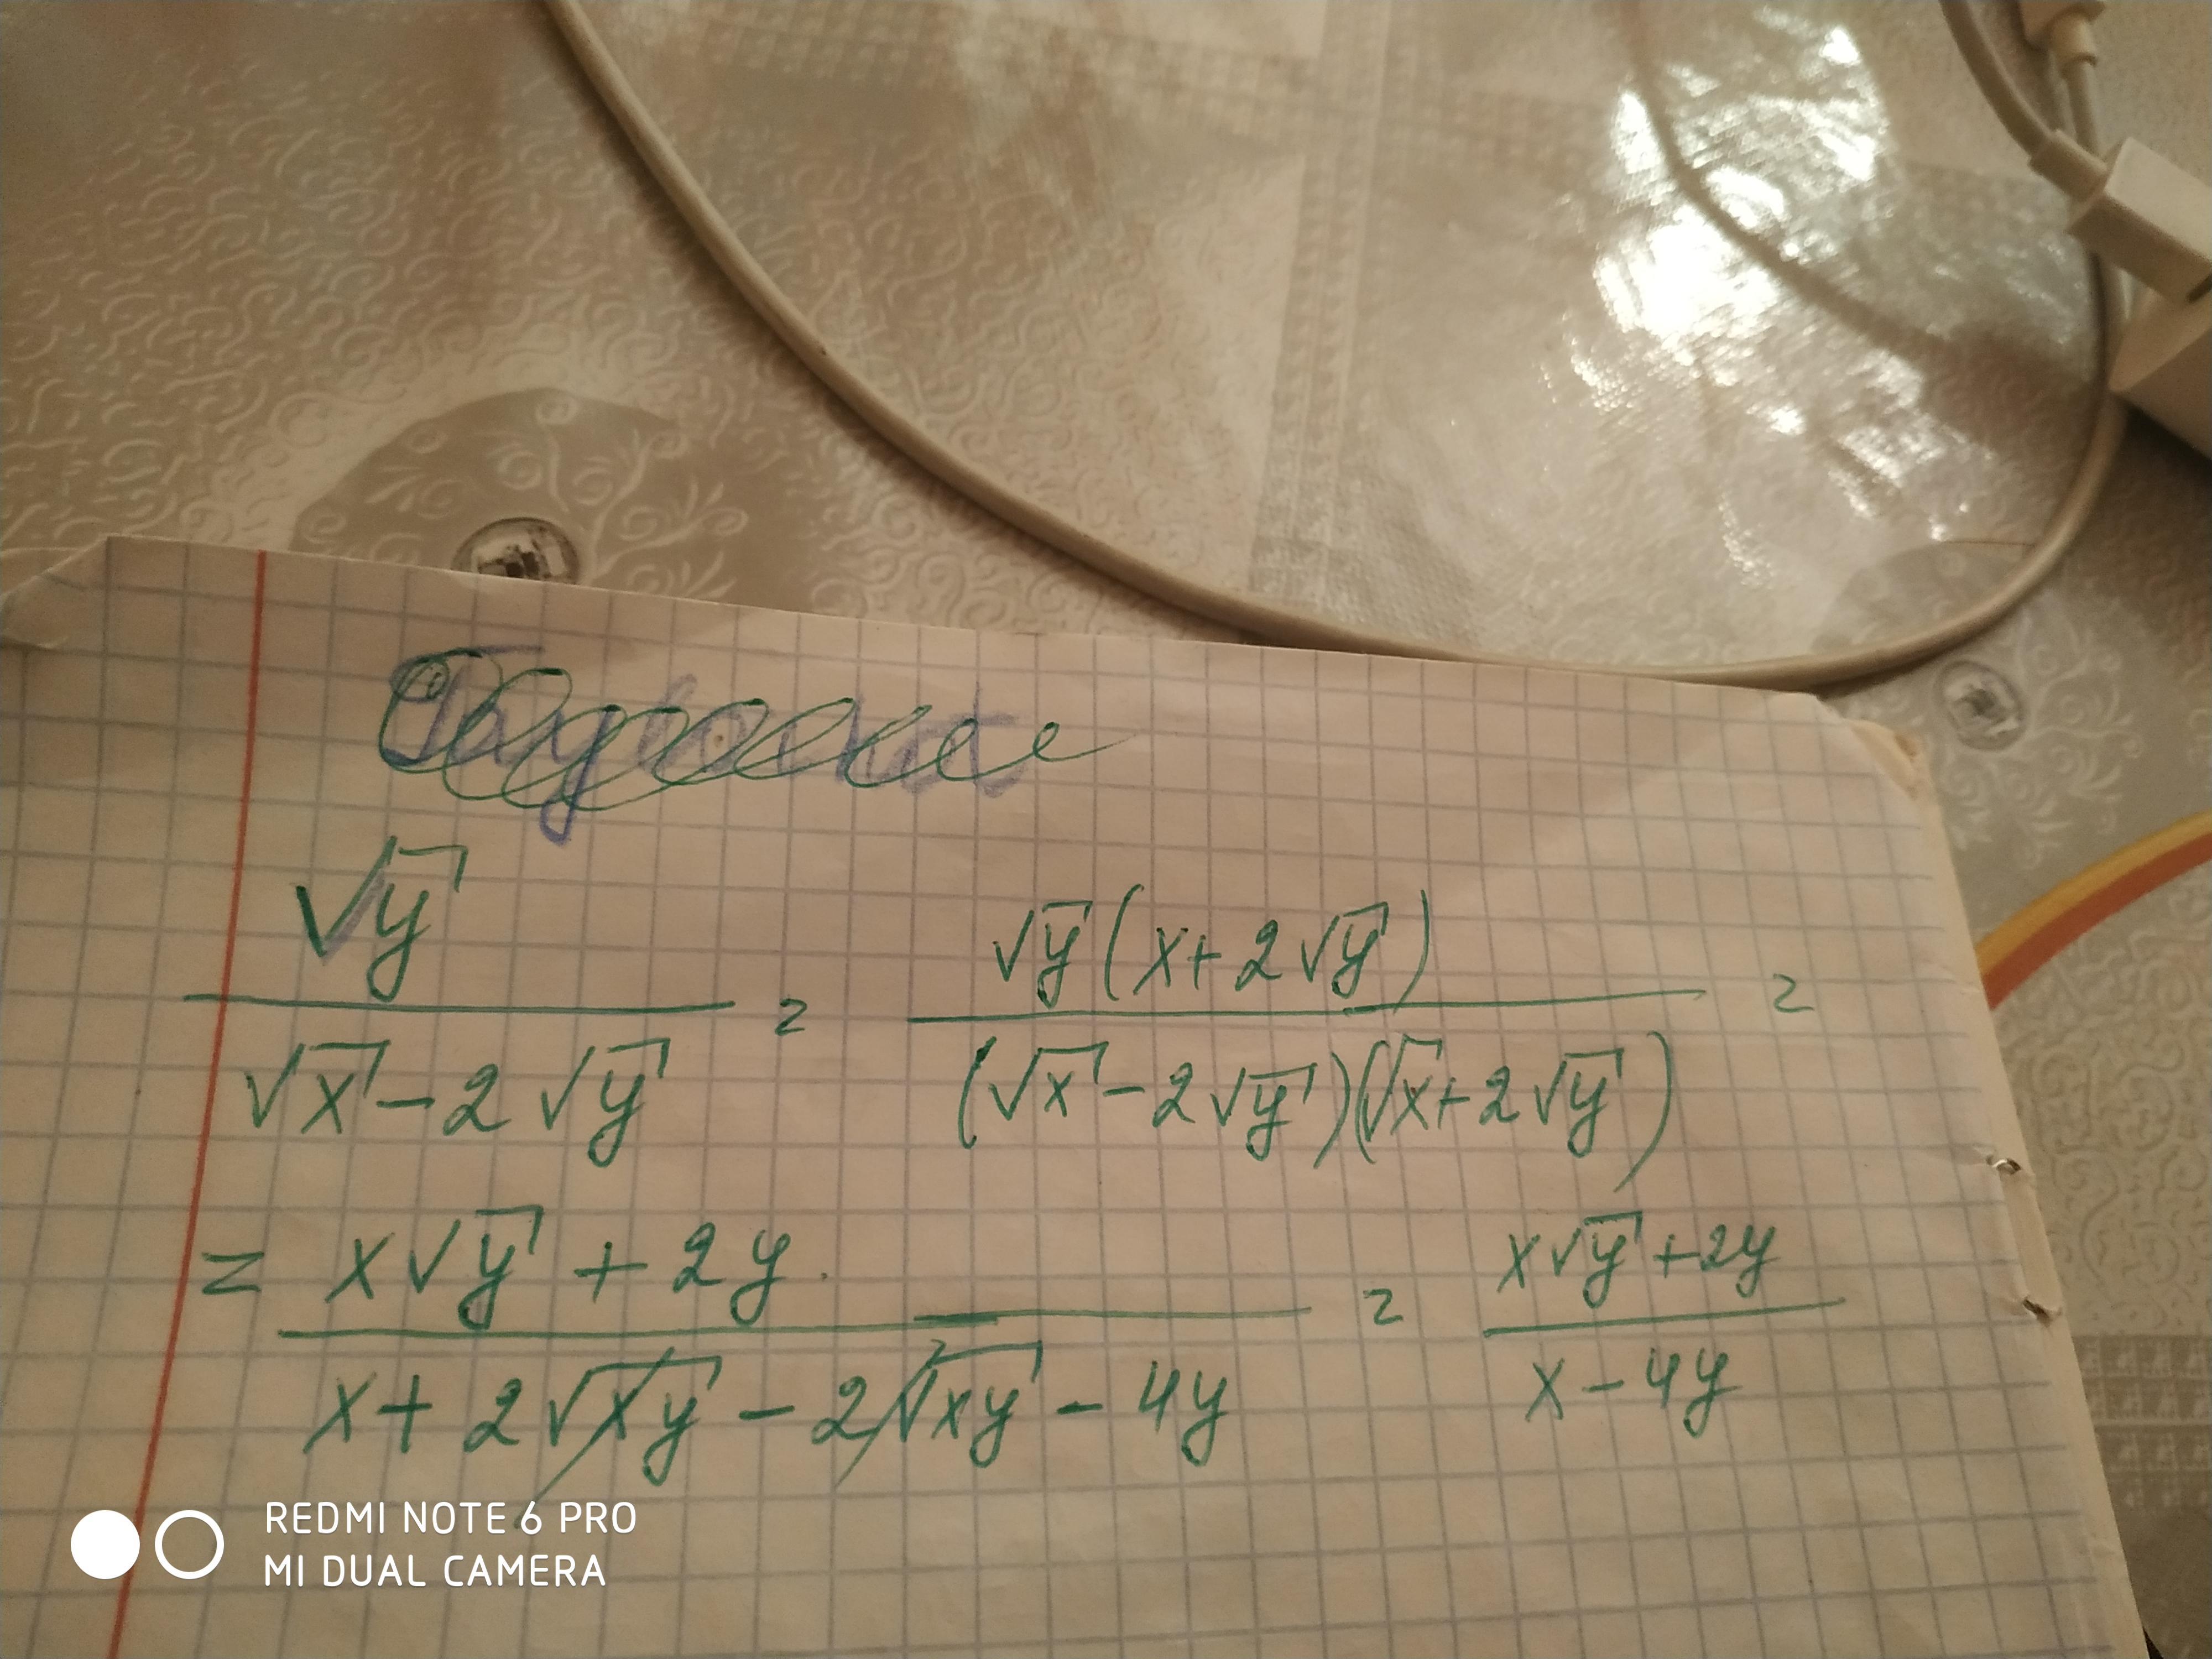 √y / (√x - 2√y) = √y(x + 2√y) / ((√x - 2√y)(√x + 2√y)) =
= (x√y + 2y) / (x + 2√xy - 2√xy - 4y) = (x√y + 2y) / (x - 4y)
REDMI NOTE 6 PRO
MI DUAL CAMERA